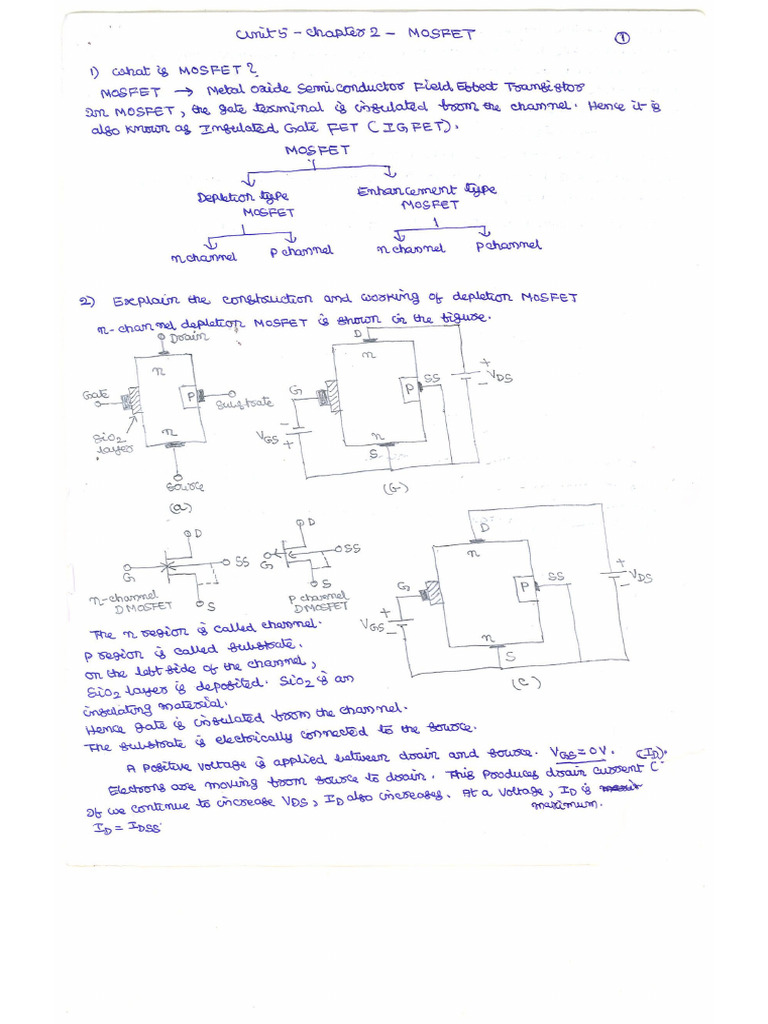 Unit 5 - Chapter 2 - MOSFET
1
1) What is MOSFET?
MOSFET → Metal Oxide Semiconductor Field Effect Transistor
In MOSFET, the gate terminal is insulated from the channel. Hence it is
also known as Insulated Gate FET (IGFET).
MOSFET
Depletion type
MOSFET
Enhancement type
MOSFET
n channel
P channel
n channel
P channel
2) Explain the construction and working of depletion MOSFET
n-channel depletion MOSFET is shown in the figure.
Drain
n
Gate
P
Substrate
SiO2
layer
n
Source
(a)
D
n
G
P
SS
VDS
+
-
VGS
-
+
n
S
(b)
D
SS
G
S
n-channel
DMOSFET
D
SS
G
S
P channel
DMOSFET
D
n
G
P
SS
VDS
+
-
VGS
+
-
n
S
(c)
The n region is called channel.
P region is called substrate.
on the left side of the channel,
SiO2 layer is deposited. SiO2 is an
insulating material.
Hence gate is insulated from the channel.
The substrate is electrically connected to the source.
A Positive voltage is applied between drain and source. VGS = 0V.
Electrons are moving from source to drain. This Produces drain current (ID).
If we continue to increase VDS, ID also increases. At a voltage, ID is maximum.
ID = IDSS.